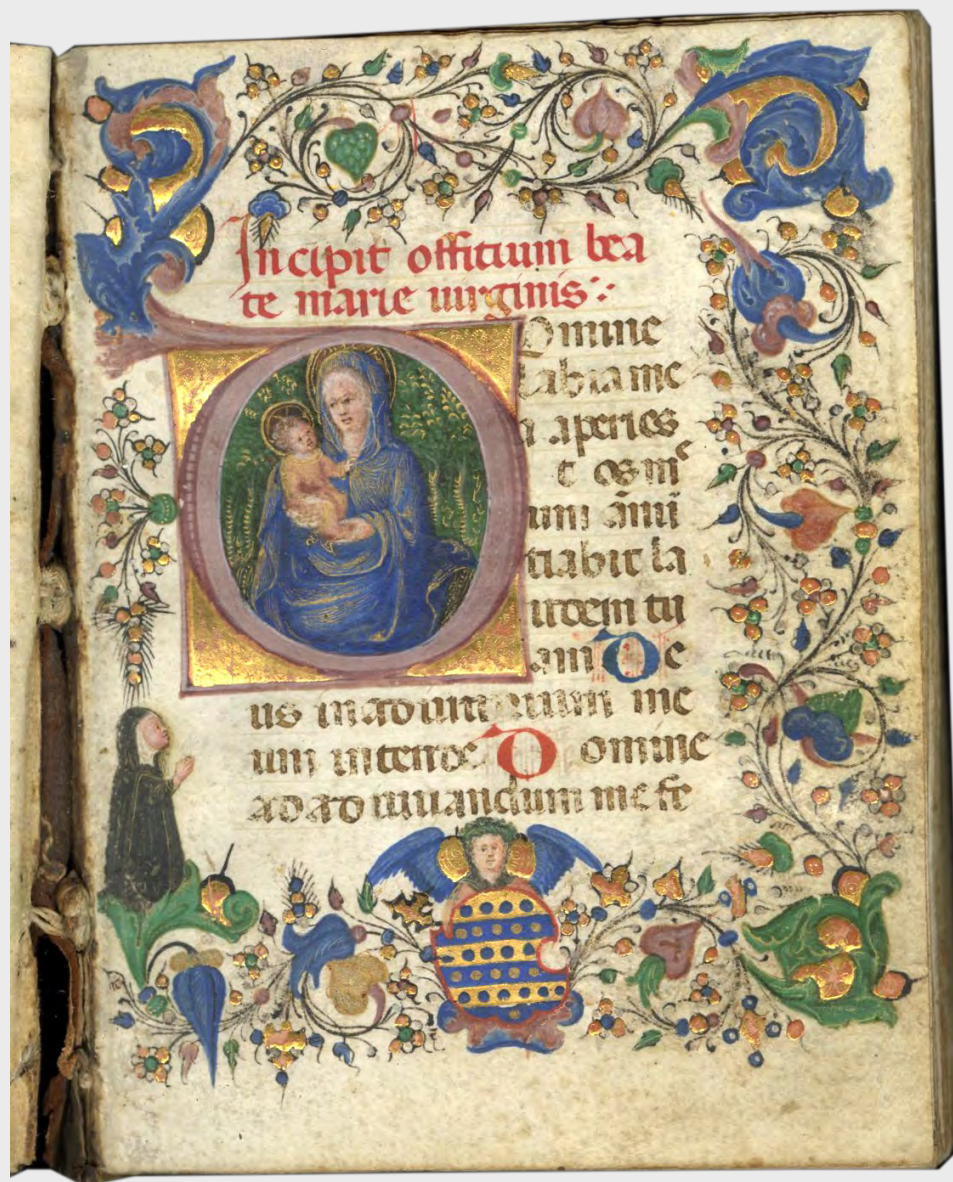 Incipit offitium bea
te marie uirginis:·
DOmine
labia me
a aperies
t os mᵉ
um ãnũ
tiabit la
udem tu
am De
us in adiutorium me
um intende Domine
ad adiuuandum me fe